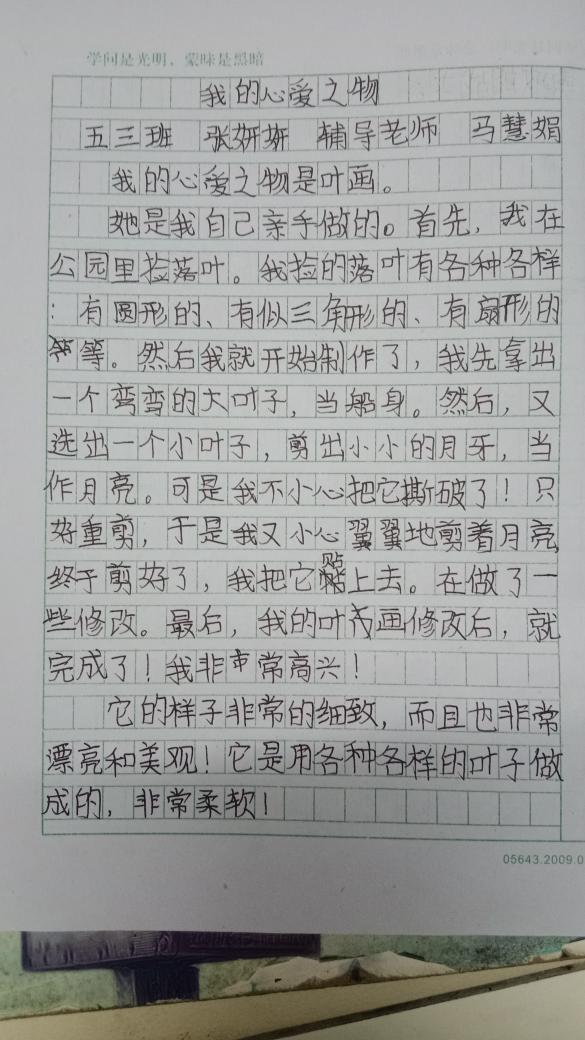 学问是光明，蒙昧是黑暗
我的心爱之物
五三班 张妍妍 辅导老师 马慧娟
我的心爱之物是叶画。
她是我自己亲手做的。首先，我在
公园里捡落叶。我捡的落叶有各种各样
：有圆形的、有似三角形的、有扇形的
等等。然后我就开始制作了，我先拿出
一个弯弯的大叶子，当船身。然后，又
选出一个小叶子，剪出小小的月牙，当
作月亮。可是我不小心把它撕破了！只
好重剪，于是我又小心翼翼地剪着月亮
终于剪好了，我把它贴上去。在做了一
些修改。最后，我的叶画修改后，就
完成了！我非常高兴！
它的样子非常的细致，而且也非常
漂亮和美观！它是用各种各样的叶子做
成的，非常柔软！
05643.2009.0